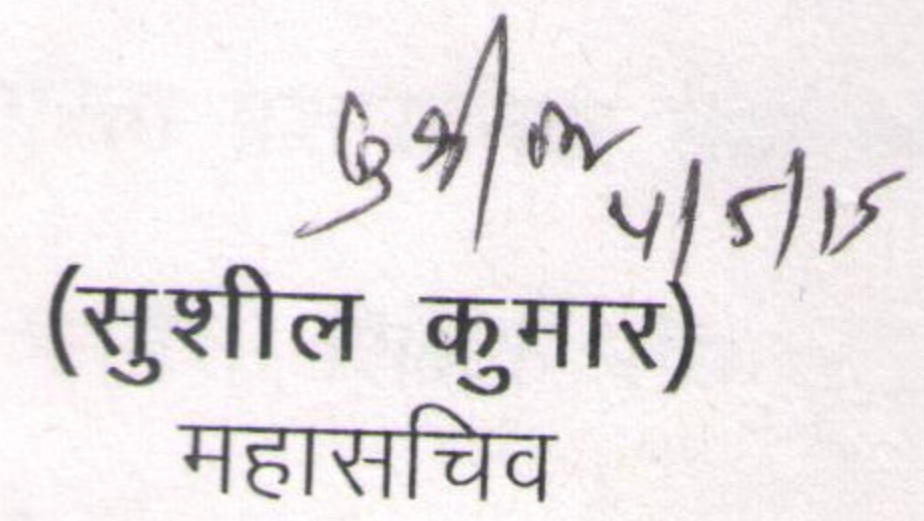 सुशील
4/5/15
(सुशील कुमार)
महासचिव